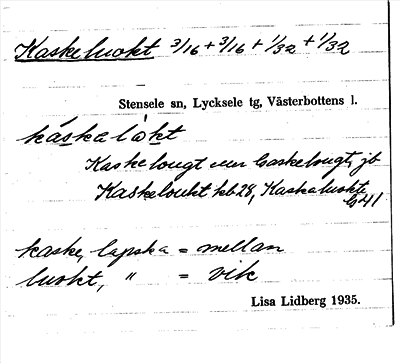 Kaskeluokt 3/16 + 3/16 + 1/32 + 1/32
Stensele sn, Lycksele tg, Västerbottens l.
káskalòkt
Kaskelougt jb
Kaskeloukt kb 28, Kaskaluokt
G 41
kaske, lapska = mellan
luokt, " = vik
Lisa Lidberg 1935.